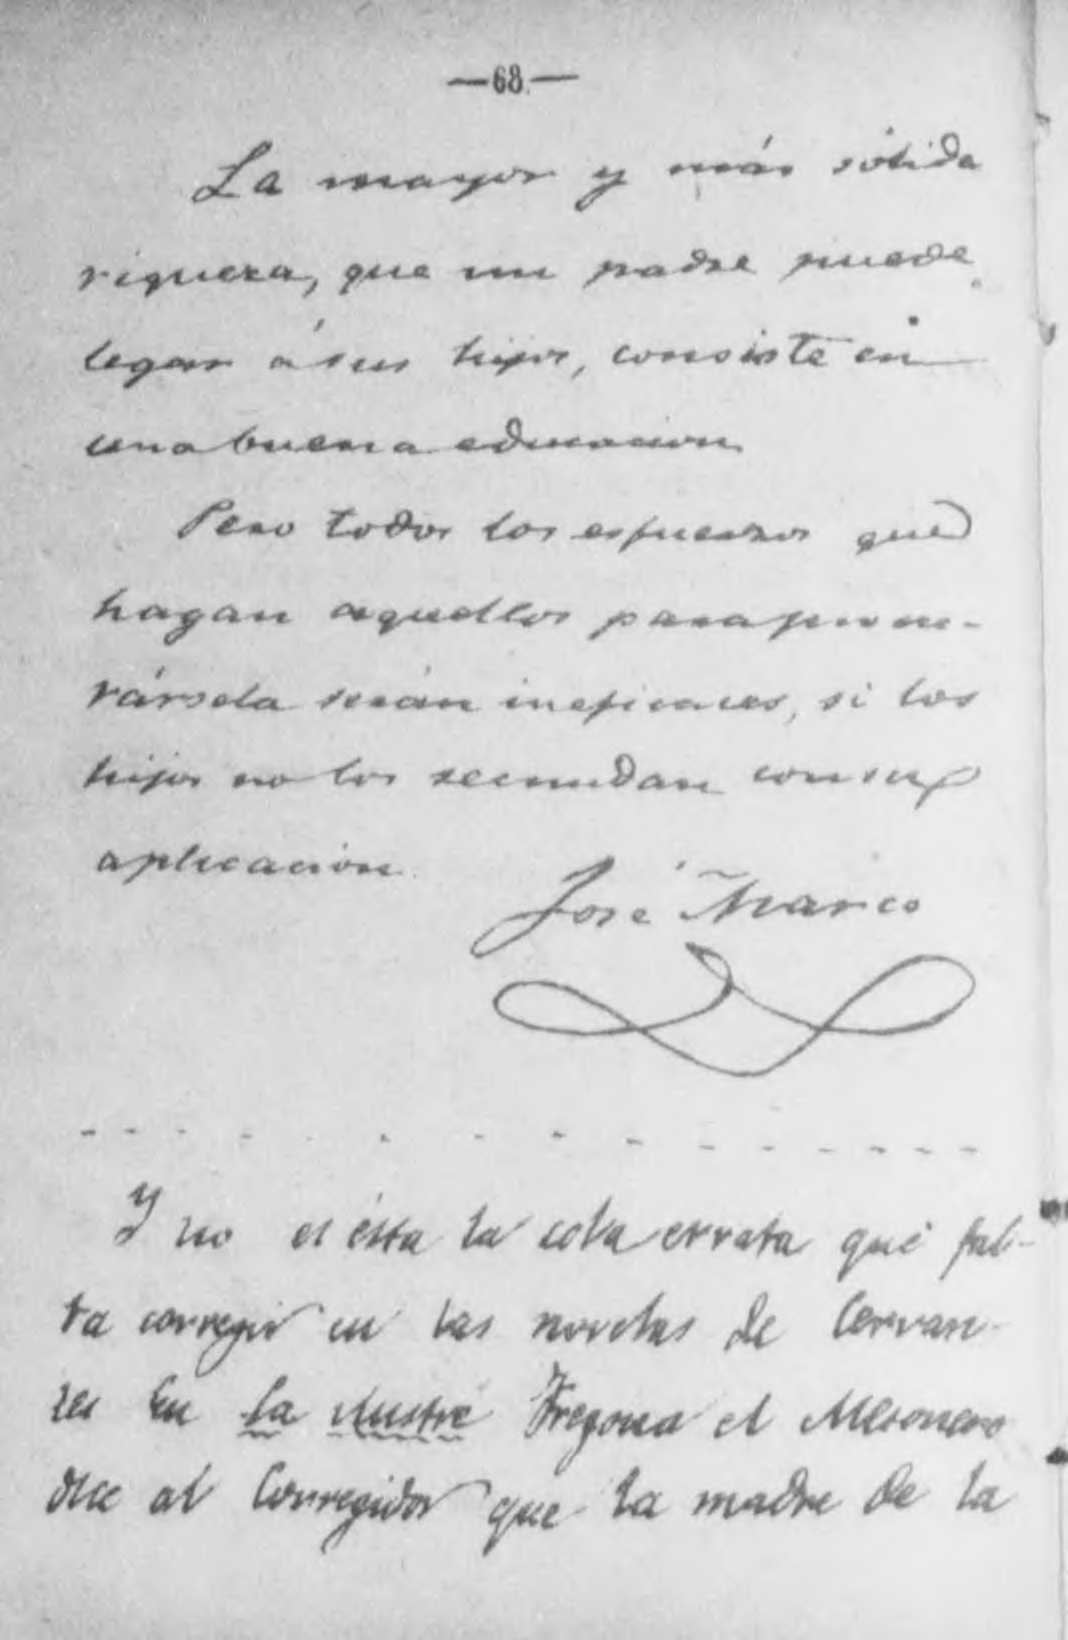 —68.—
La mayor y más sólida
riqueza, que un padre puede
legar á sus hijos, consiste en
una buena educacion
Pero todos los esfuerzos que
hagan aquellos para procu-
rársela serán ineficaces, si los
hijos no los secundan con su
aplicación.
José Marco
Y no es ésta la sola errata que fal-
ta corregir en las novelas de Cervan-
tes En la ilustre Fregona el Mesonero
dice al Corregidor que la madre de la